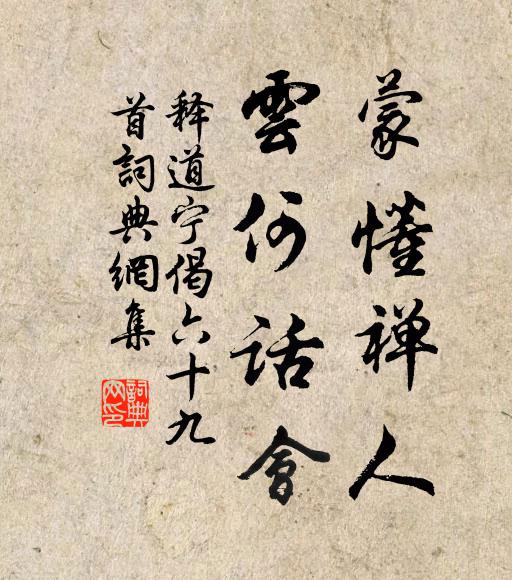 蒙懂禅人
雲何話會
释道宁偈六十九
首詞典網集
詞典
网印